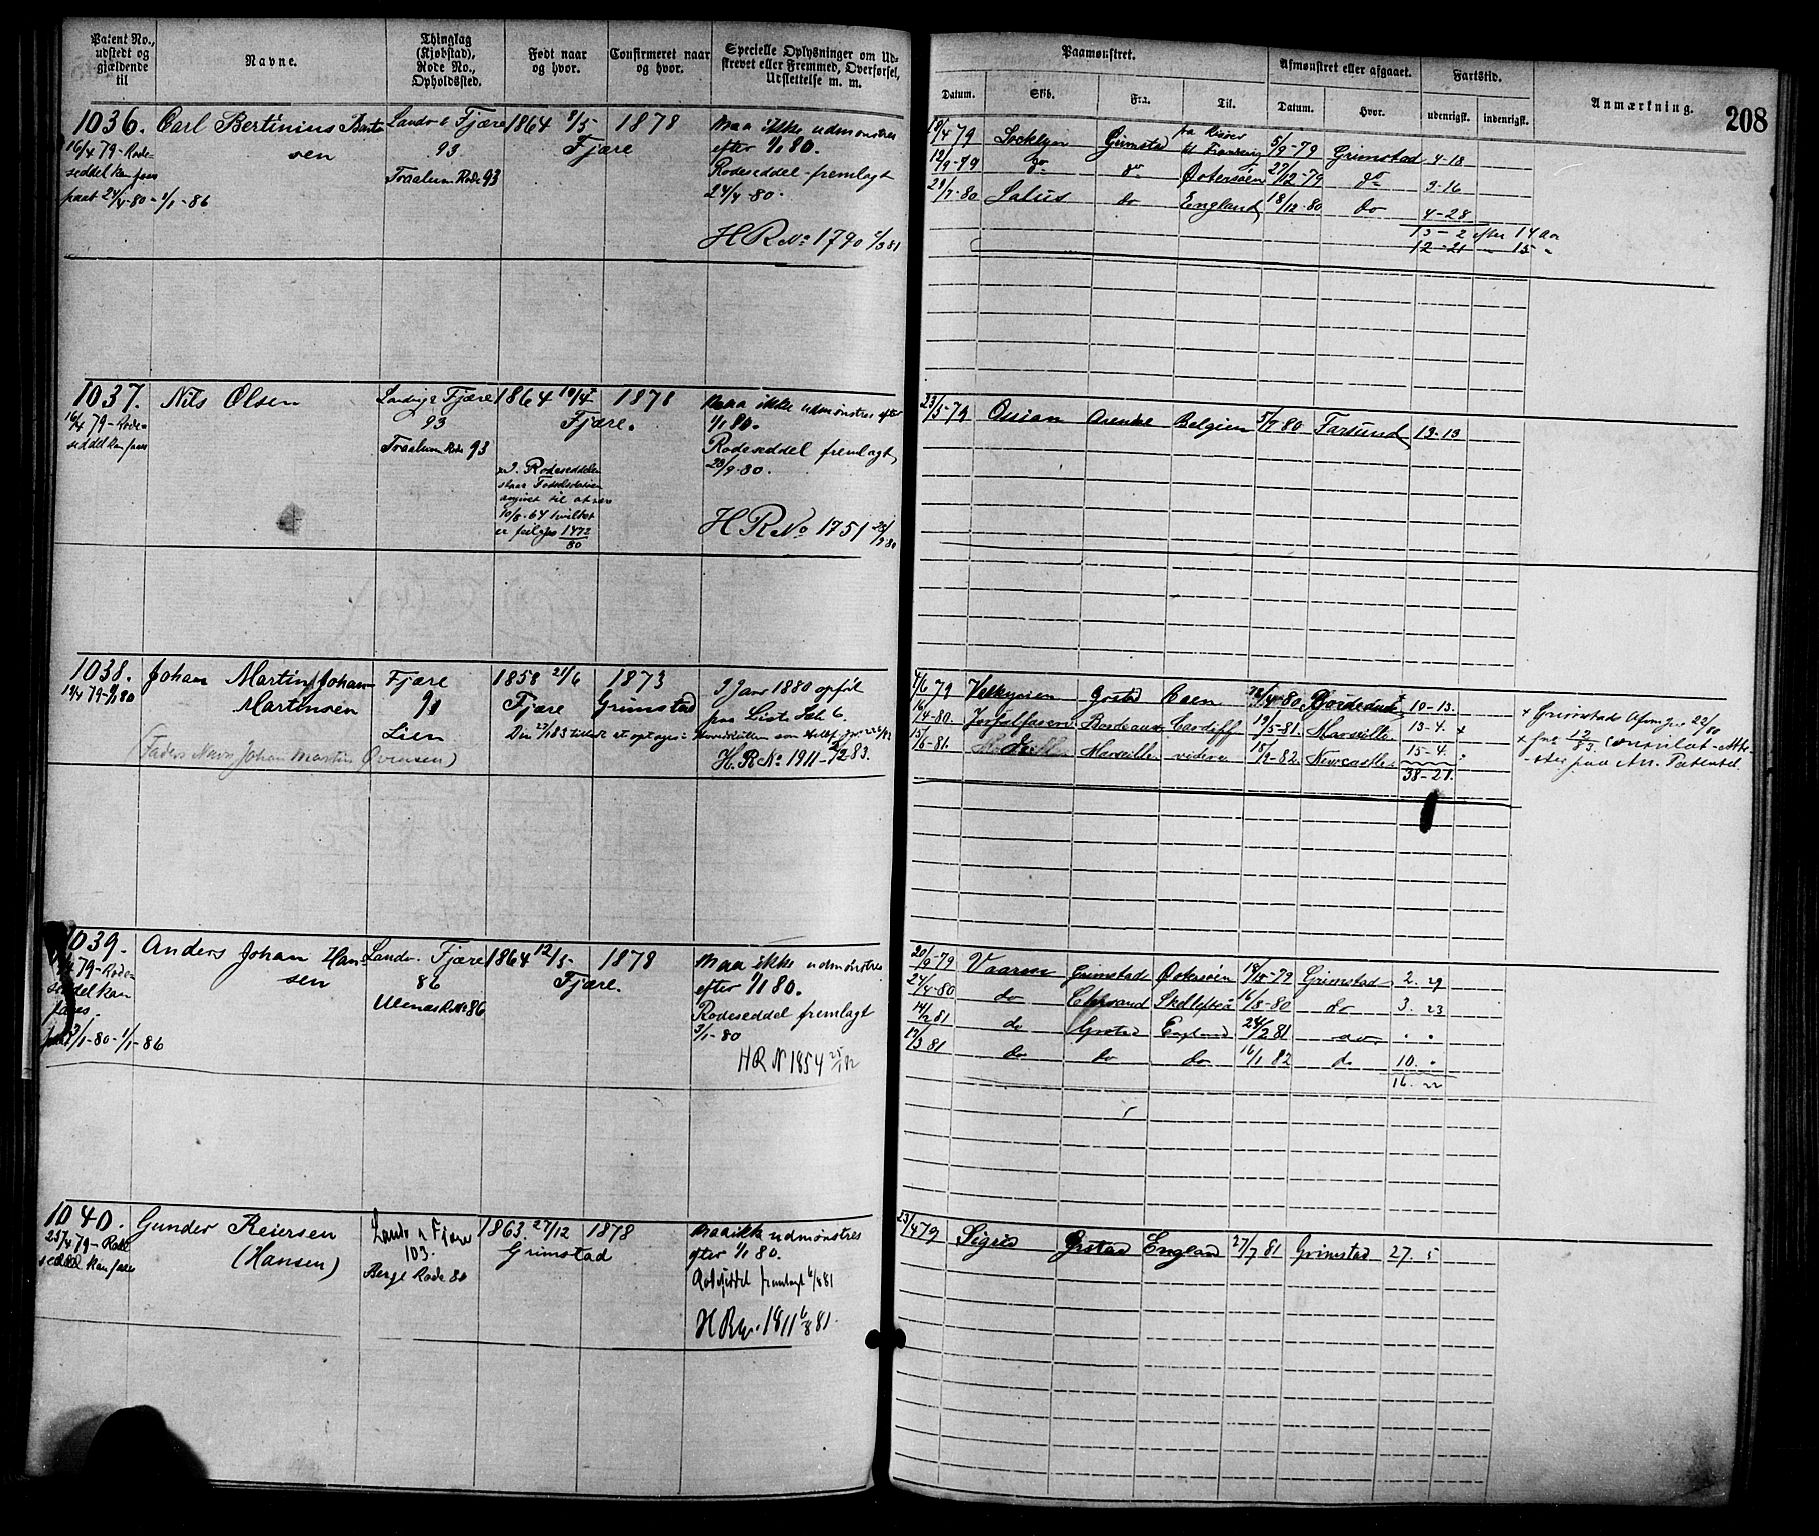 Patent No., udstedt og gjældende til
Navne.
Thinglag (Kjøbstad), Rode No., Opholdssted.
Født naar og hvor.
Confirmeret naar og hvor.
Specielle Oplysninger om Udskrevet eller Fremmed, Overførsel, Utslettelse m. m.
Paamønstret.
Afmønstret eller afgaaet.
Fartstid.
Anmærkning.
208
Datum. Skib. Fra. Til. Datum. Hvor. udenrigsk. indenrigsk.
1036. Carl Bertinius Bertesen
16/4 79 - Rodeseddel kan faaes
paat 24/4-80 - 1/1-86
Landv & Fjære
93
Traalum Rode 93
1864 9/5 1878
Fjære
maa ikke udmønstres
efter 1/1 80.
Rodeseddel fremlagt
24/4-80.
H R No 1790 2/3 81
18/4 79 Grimstad fra Risør til 5/9-79 Grimstad 4-18
12/9-79 do do Østersøen 27/12-79 do 3-16
29/7-80 Salus do England 18/12-80 do 4-28
13-2 efter 14 Aar
12-21 — 15 "
1037. Nils Olsen
16/4 79 - Rodeseddel kan faaes
Landvig & Fjære
93
Traalum Rode 93
1864 10/4 1878
Fjære.
x I Rodeseddelen
staar Fødselsdatoen
angivet til at være
10/8-64 hvilket
er feil gjs 1472/80
maa ikke udmønstres efter
1/1 80.
Rodeseddel fremlagt
23/9-80.
H R No 1751 23/9 80
23/5-79 Ossian Belgien 5/7 80 Farsund 13-13
1038. Johan Martin Johan Martinsen
19/4 79-1/1 80
(Faders Navn Johan Martin Evensen)
Fjære
91
Lien
1858 21/6 1873
Fjære Grimstad
I Janr 1880 opført
paa Liste Lit 6.
H. R No 1911 - 12/2 83.
4/6 79 Grstad Caen 80 10-13.
16/4-80. Bordeaux Cardiff 19/5-81. Marseille 13-4. x
15/6-81. Marseille videre 15/9-82. Newcastle. 15-4.
38-21.
x Grimstads
x 12/83 Consulat-Atte-
ster paa
1039. Anders Johan Hansen
79 - Rodeseddel kan
faaes.
1/1-80-1/1-86
Landv. Fjære
86
Rode 86
1864 12/5 1878
Fjære.
maa ikke udmønstres
efter 1/1 80.
Rodeseddel fremlagt
3/1-80
H R N 1854 25/1 82
20/9-79 Grimstad Østersøen 18/12-79 Grimstad 2. 29
24/4-80 do Chrsand 16/8-80 do 3. 23
14/2 81 do Grstad England 24/2 81 do " "
12/3 81 do do do 16/1 82 do 10. "
16. 22
1040. Gunder Reiersen
(Hansen)
25/4 79 - Rodeseddel kan faaes
Landv & Fjære
103.
Berge Rode 80
1863. 27/12 1878
Grimstad
maa ikke udmønstres
efter 1/1 80.
Rodeseddel fremlagt 6/8 81
H R No. 1811 6/8 81.
23/4 79 Sigrid Grstad England 27/7 81 Grimstad 27. 5